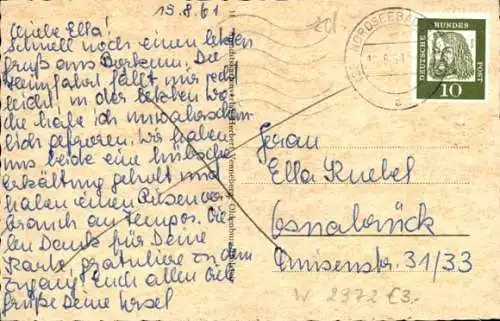 15.8.61
Liebe Ella!
Schnell noch einen letzten
Gruß aus Borkum. Die
Heimfahrt fällt mir recht
leicht, in der letzten Wo
che habe ich
lich gefroren. Wir haben
uns beide eine hübsche
Erkältung geholt und
haben einen Riesenver
brauch an Tempos. Vie
len Dank für Deine
Karte, gratuliere zu dem
Euch allen viele
Grüße Deine Ursel
NORDSEEBA
DEUTSCHE BUNDESPOST
10
Ella Knebel
Osnabrück
Luisenstr. 31/33
W 2372 €3.-